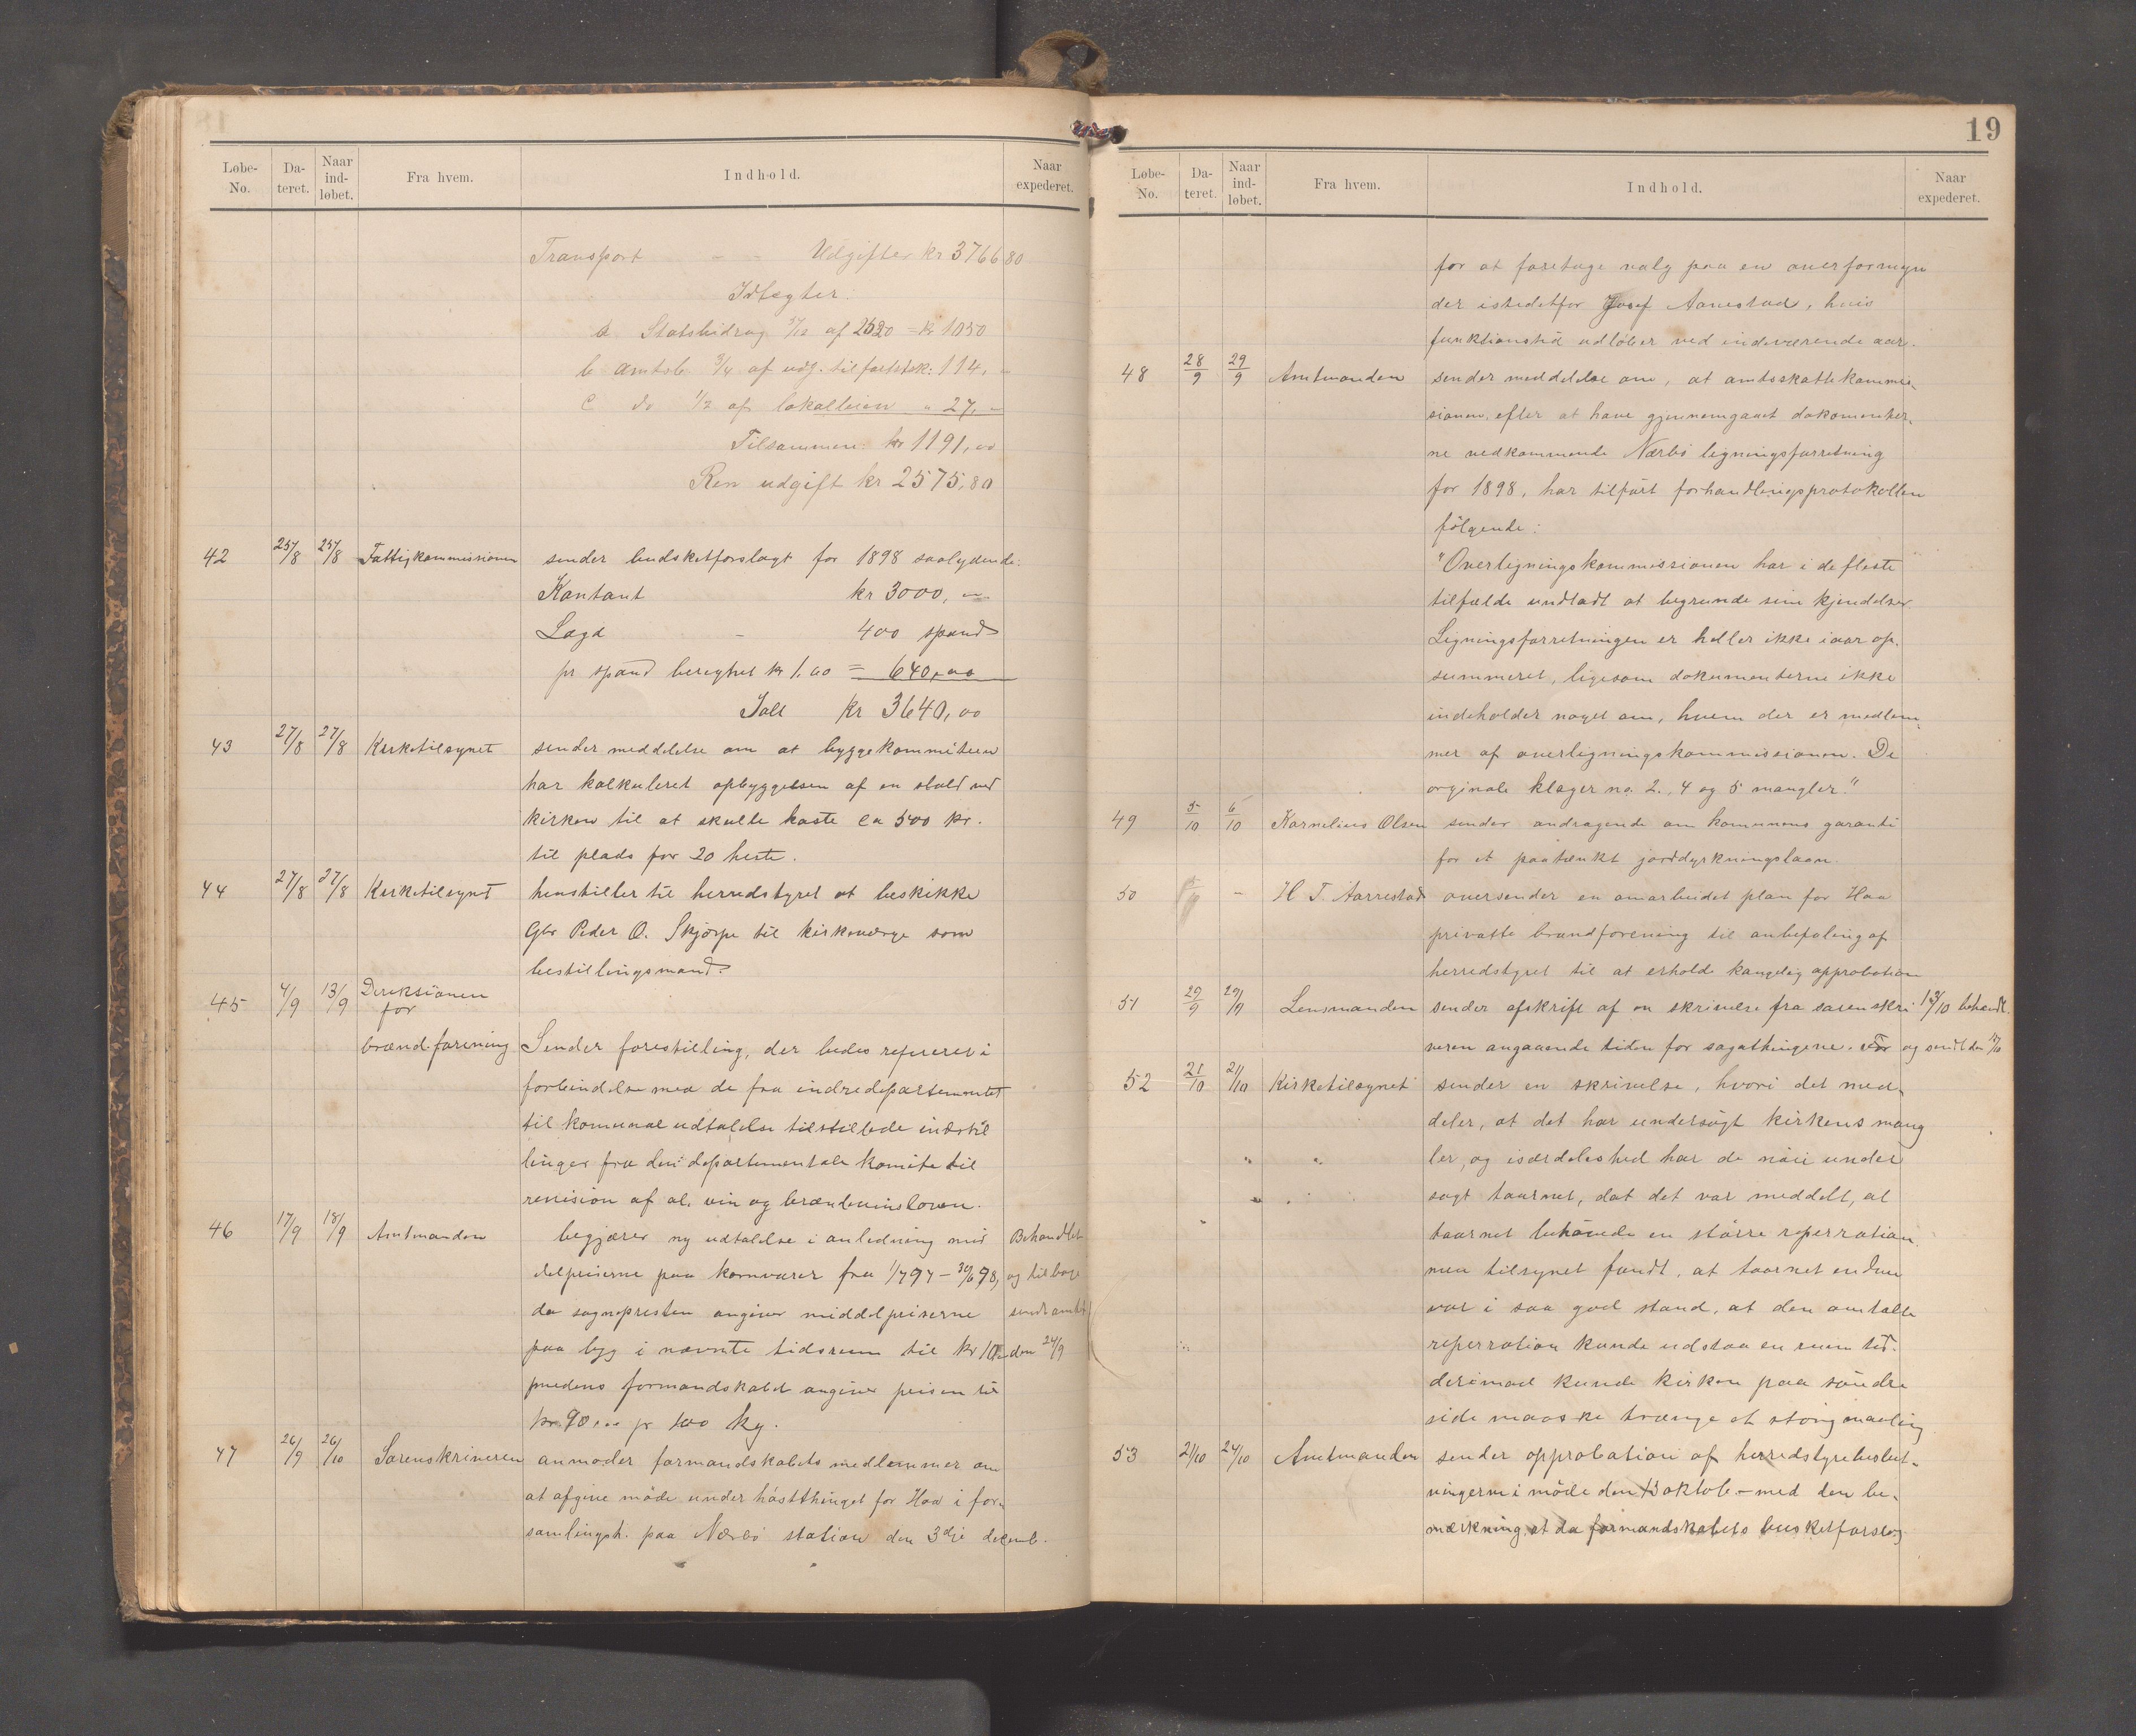 Løbe-No. Da-teret. Naar ind-løbet. Fra hvem. Indhold. Naar expederet.
Transport - - Udgifter kr 3766 80
Idtægter:
a. Statsbidrag 5/12 af 2520 = kr 1050
b amtsb. 3/4 af udg. til fortstsk: 114, -
c do 1/2 af lokalleien " 27, -
Tilsammen kr 1191,00
Ren udgift kr 2575,80
42 25/8 25/8 Fattigkommissionen sender budsketforslagt for 1898 saalydende.
Kontant kr 3000, -
Lagd - 400 spand
pr spand beregnet kr 1.60 = 640,00
Ialt kr 3640,00
43 27/8 27/8 Kirketilsynet sender meddelelse om at byggekommiteen
har kalkuleret opbyggelsen af en stald ved
kirken til at skulle koste ca 500 kr.
til plads for 20 heste.
44 27/8 27/8 Kirketilsynt henstiller til herredstyret at beskikke
Gbr Peder O. Skjørpe til kirkeværge som
bestillingsmand.
45 4/9 13/9 Direksionen
for
brændeforening Sender forestilling, der bedes refereret i
forbindelse med de fra indredepartementet
til komunal udtalelse tilstillede indstil
linger fra den departementale komite til
revision af øl, vin og brændevinsloven.
46 17/9 18/9 Amtmanden begjærer ny udtalelse i anledning mid Behandlet
delpriserne paa kornvarer fra 1/7 97 - 30/6 98, og tilbage
da sognepresten angiver middelpriserne sendt amtet
paa byg i nævnte tidsrum til kr 10, den 24/9
medens formandskabet angiver prisen til
kr 90,00 pr 100 kg.
47 26/9 26/10 Sorenskriveren anmoder formandskabets medlemmer om
at afgive møde under høstthinget for Haa i for-
samlingsh. paa Nærbø station den 3die decemb.
19
Løbe-No. Da-teret. Naar ind-løbet. Fra hvem. Indhold. Naar expederet.
for at foretage valg paa en overformyn
der istedetfor Josef Aarrestad, hvis
funktionstid udløber ved indeværende aar.
48 28/9 29/9 Amtmanden sender meddelelse om, at amtsskattekommis-
sionen, efter at have gjennemgaaet dokumenter-
ne vedkommende Nærbø ligningsforretning
for 1898, har tilført forhandlingsprotokollen
følgende:
"Overligningskommissionen har i de fleste
tilfælde undladt at begrunde sine kjendelser
Ligningsforretningen er heller ikke iaar op-
summeret, ligesom dokumenterne ikke
indeholder noget om, hvem der er medlem-
mer af overligningskommissionen. De
orginale klager no. 2., 4 og 5 mangler."
49 5/10 6/10 Kornelius Olsen sender andragende om komunens garanti
for et paatænkt jorddyrkningslaan.
50 - H T. Aarrestad oversender en omarbeidet plan for Haa
privatte brandforening til anbefaling af
herredstyret til at erholde kongelig approbation
51 29/9 29/9 Lensmanden sender afskrift af en skrivelse fra sorenskri 13/10 behandl.
veren angaaende tiden for sagathingene. og sendt den
52 21/10 21/10 Kirketilsynet sender en skrivelse, hvori det med-
deler, at det har undersøgt kirkens mang
" " ler, og isærdeleshed har de nøii under
" " søgt taarnet, dat det var meddelt, at
" taarnet behøvede en større reperration.
men tilsynet fandt, at taarnet endnu
var i saa god stand, at den omtalte
reperration kunde udstaa en rum tid.
derimod kunde kirken paa søndre
side maaske trænge et strøg maaling
53 21/10 24/10 Amtmanden sender opprobation af herredstyrebeslut-
ningerne i møde den 13 oktob. - med den be-
mærkning at da formandskabets busketforslag